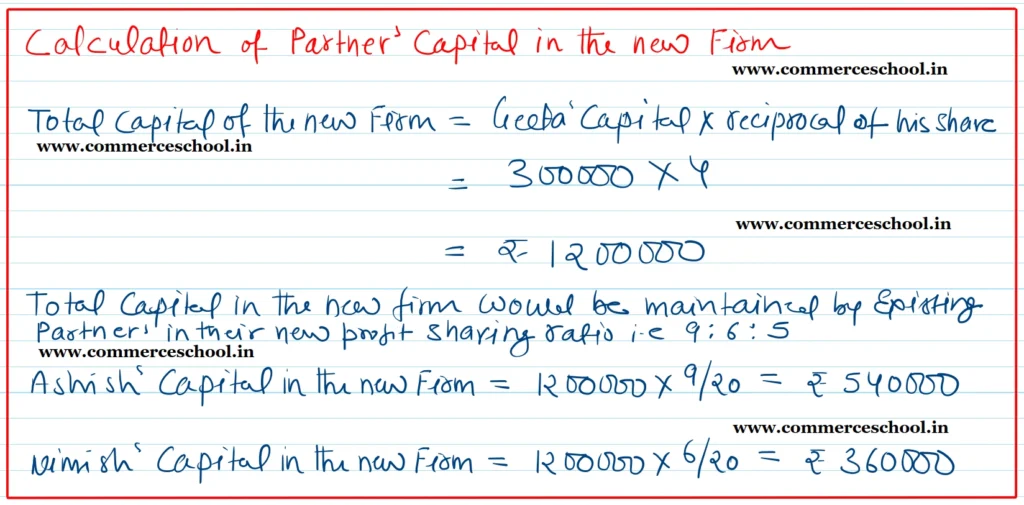 Calculation of Partner's Capital in the new Firm
www.commerceschool.in
Total Capital of the new Firm = Geeta' Capital x reciprocal of his share
www.commerceschool.in
= 300000 x 4
www.commerceschool.in
= ₹ 1200000
Total Capital in the new firm would be maintained by Existing
Partners' in their new profit sharing ratio i.e 9 : 6 : 5
www.commerceschool.in
Ashish' Capital in the new Firm = 1200000 x 9/20 = ₹ 540000
www.commerceschool.in
Nimish' Capital in the new Firm = 1200000 x 6/20 = ₹ 360000